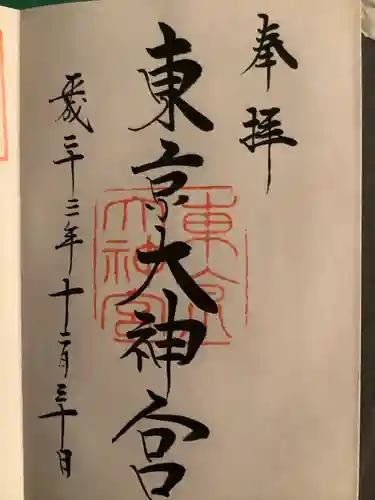 奉拝
東京大神宮
平成二十三年十二月三十日
東京
大神宮